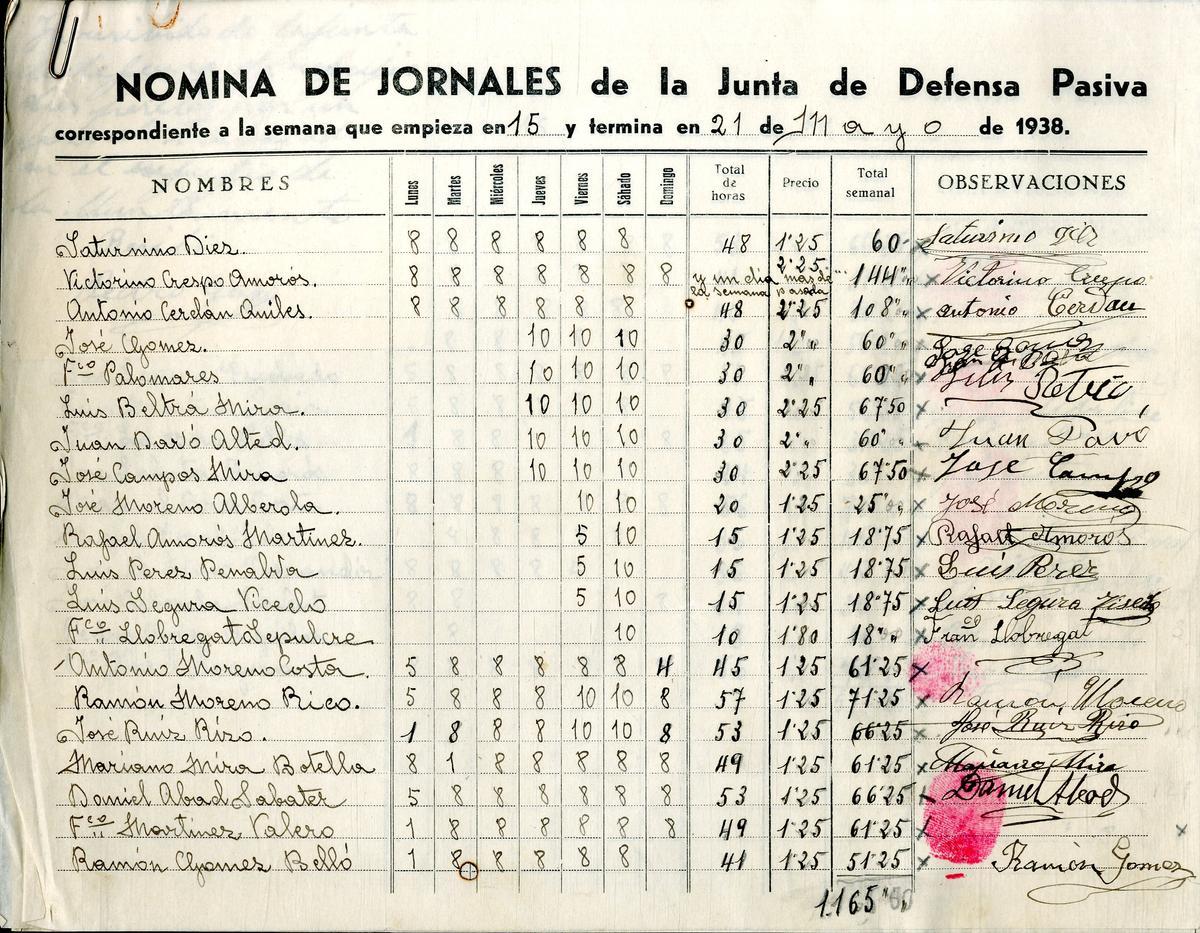 NOMINA DE JORNALES de la Junta de Defensa Pasiva
correspondiente a la semana que empieza en 15 y termina en 21 de Mayo de 1938.
NOMBRES Lunes Martes Miércoles Jueves Viernes Sábado Domingo Total de horas Precio Total semanal OBSERVACIONES
Saturnino Diez 8 8 8 8 8 8 48 1'25 60 Saturnino
Victorino Crespo Amorós. 8 8 8 8 8 8 8 y un dia mas de la semana pasada 2'25 144" Victorino Crespo
Antonio Cerdán Quiles. 8 8 8 8 8 8 48 2'25 108" antonio Cerdan
José Gomez. 10 10 10 30 2" 60" Jose Gomez
Fco Palomares 10 10 10 30 2" 60"
Luis Beltrá Mira. 10 10 10 30 2'25 67'50 Luis
Juan Davó Alted. 10 10 10 30 2" 60" Juan Davó
José Campos Mira 10 10 10 30 2'25 67'50 Jose Campo
José Moreno Alberola. 10 10 20 1'25 25" José Moreno
Rafael Amorós Martinez. 5 10 15 1'25 18'75 Rafael Amorós
Luis Perez Penalva 5 10 15 1'25 18'75 Luis Perez
Luis Segura Vicedo 5 10 15 1'25 18'75 Luis Segura
Fco Llobregat Sepulcre 10 10 1'80 18" Franco Llobregat
Antonio Moreno Costa. 5 8 8 8 8 8 4 45 1'25 61'25
Ramón Moreno Rico. 5 8 8 8 10 10 8 57 1'25 71'25 Ramón Moreno
José Ruiz Rizo. 1 8 8 8 10 10 8 53 1'25 66'25 José Ruiz Rizo
Mariano Mira Botella 8 1 8 8 8 8 8 49 1'25 61'25 Mariano Mira
Daniel Abad Sabater 5 8 8 8 8 8 8 53 1'25 66'25 Daniel Abad
Fco Martinez Valero 1 8 8 8 8 8 8 49 1'25 61'25
Ramón Gomez Belló 1 8 8 8 8 8 41 1'25 51'25 Ramón Gomez
1.165"